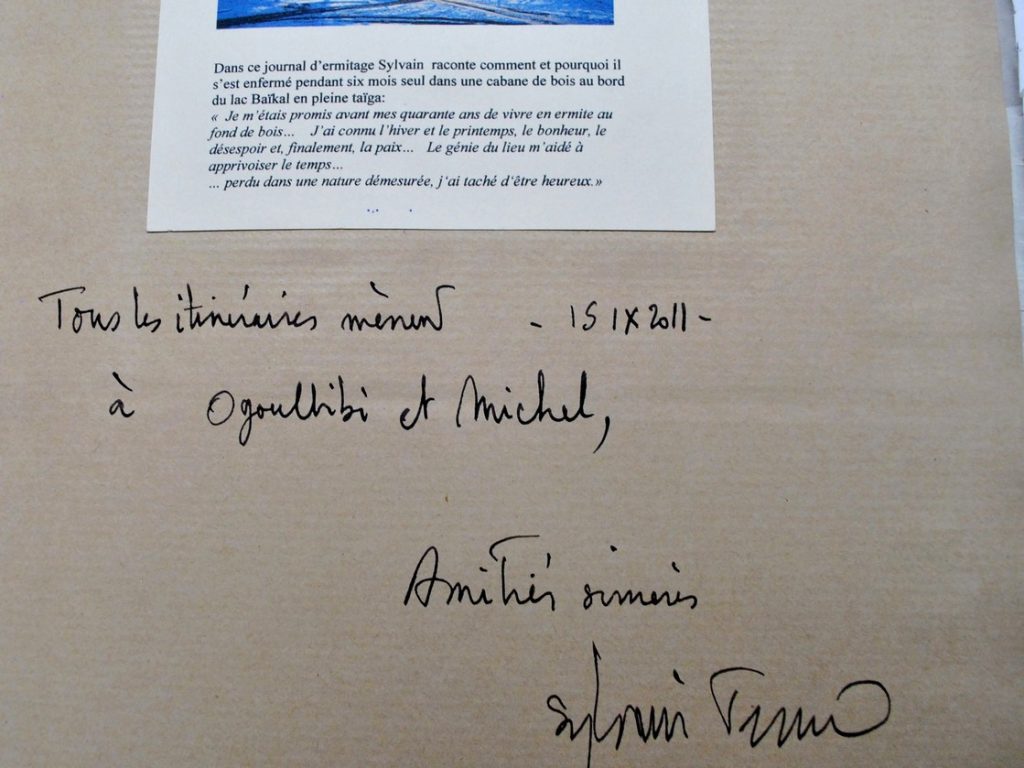 Dans ce journal d'ermitage Sylvain raconte comment et pourquoi il
s'est enfermé pendant six mois seul dans une cabane de bois au bord
du lac Baïkal en pleine taïga:
« Je m'étais promis avant mes quarante ans de vivre en ermite au
fond de bois... J'ai connu l'hiver et le printemps, le bonheur, le
désespoir et, finalement, la paix... Le génie du lieu m'aidé à
apprivoiser le temps...
... perdu dans une nature démesurée, j'ai taché d'être heureux.»
Tous les itinéraires mènent - 15 IX 2011 -
à Ogoulbibi et Michel,
Amitiés sincères
Sylvain Tesson